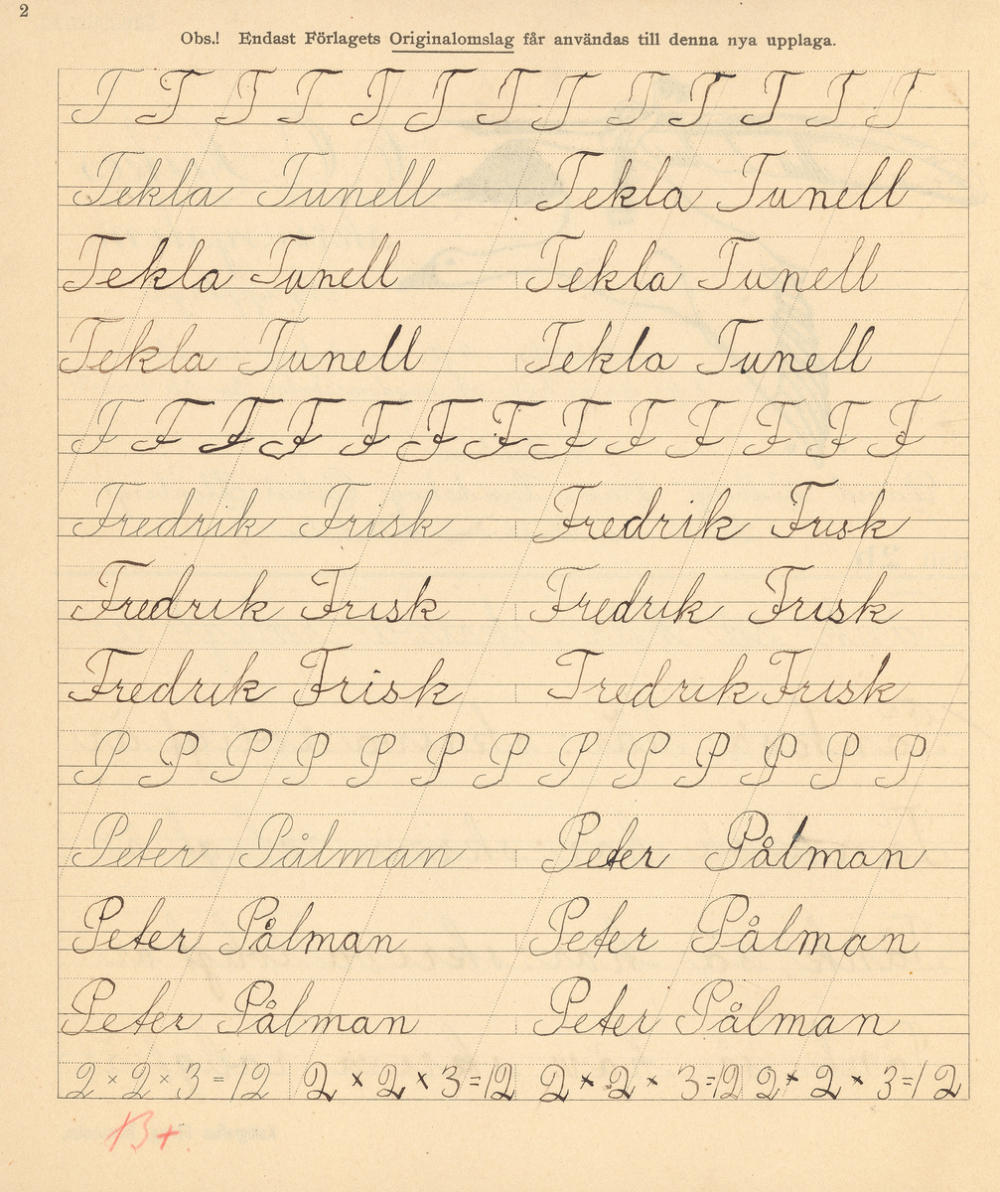 2
Obs.! Endast Förlagets Originalomslag får användas till denna nya upplaga.
T T T T T T T T T T T T T
Tekla Tunell Tekla Tunell
Tekla Tunell Tekla Tunell
Tekla Tunell Tekla Tunell
F F F F F F F F F F F F F
Fredrik Frisk Fredrik Frisk
Fredrik Frisk Fredrik Frisk
Fredrik Frisk Tredrik Frisk
P P P P P P P P P P P P P
Peter Pålman Peter Pålman
Peter Pålman Peter Pålman
Peter Pålman Peter Pålman
2 × 2 × 3 = 12 2 × 2 × 3 = 12 2 × 2 × 3 = 12 2 × 2 × 3 = 12
B+.